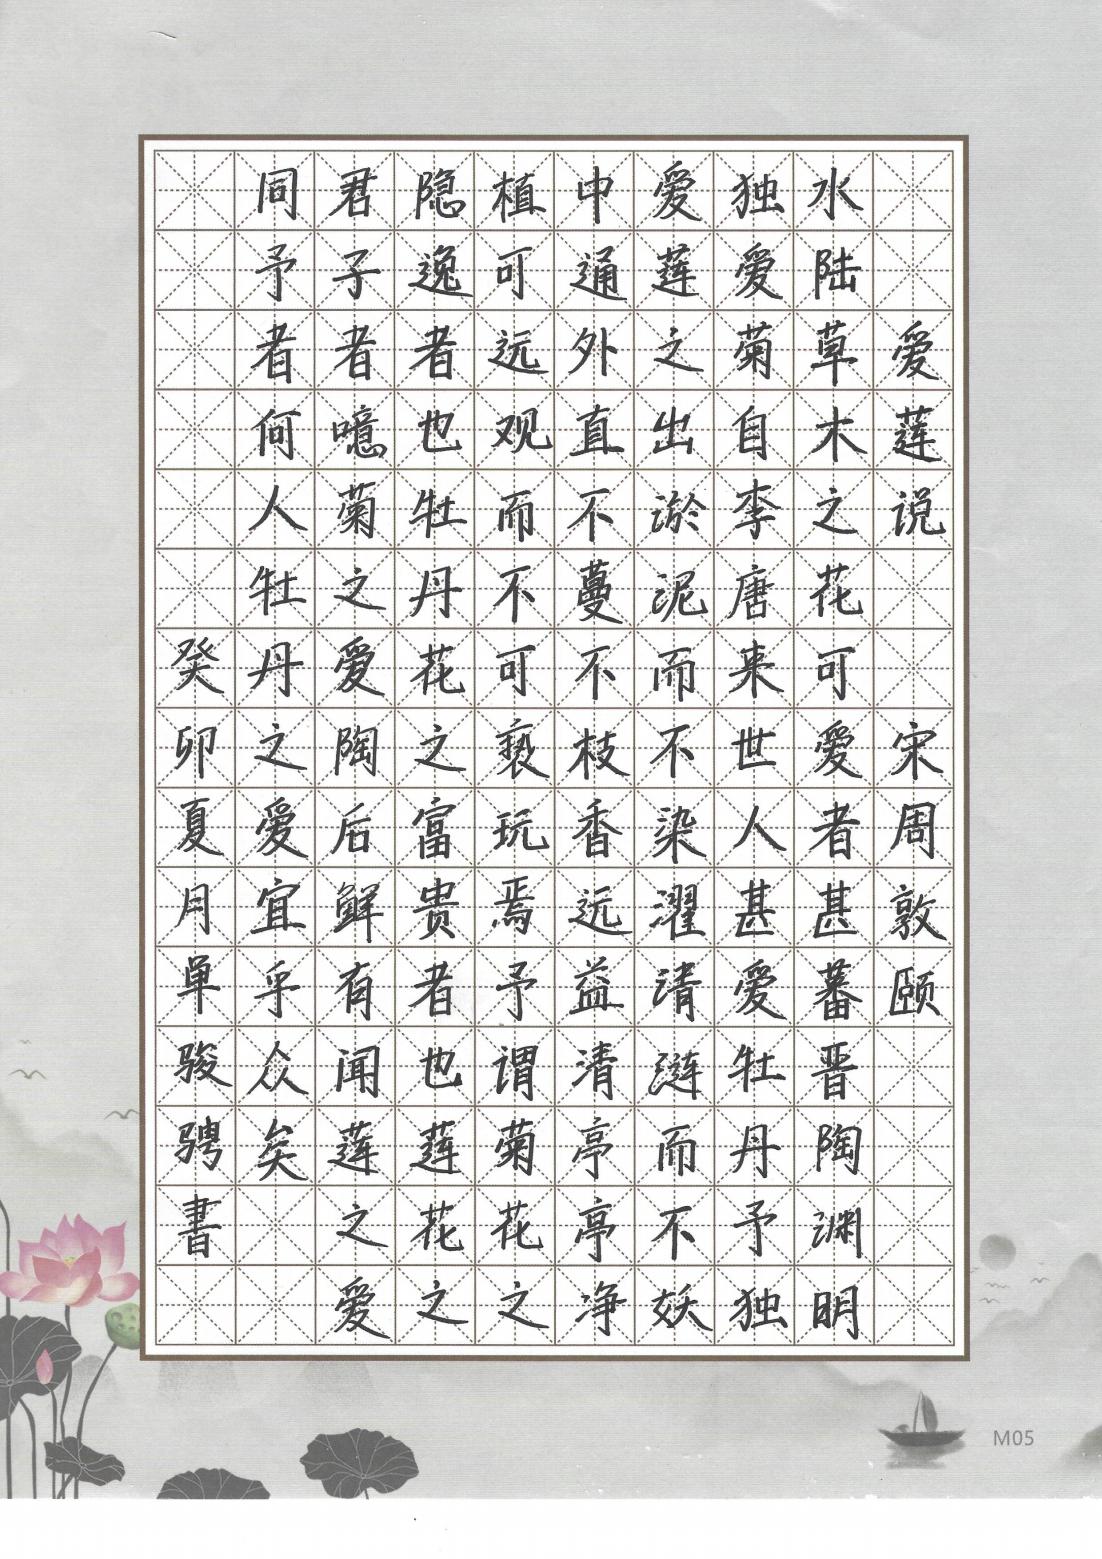 爱莲说 宋周敦颐
水陆草木之花可爱者甚蕃晋陶渊明
独爱菊自李唐来世人甚爱牡丹予独
爱莲之出淤泥而不染濯清涟而不妖
中通外直不蔓不枝香远益清亭亭净
植可远观而不可亵玩焉予谓菊花之
隐逸者也牡丹花之富贵者也莲花之
君子者噫菊之爱陶后鲜有闻莲之爱
同予者何人牡丹之爱宜乎众矣
癸卯夏月单骏骋書
M05